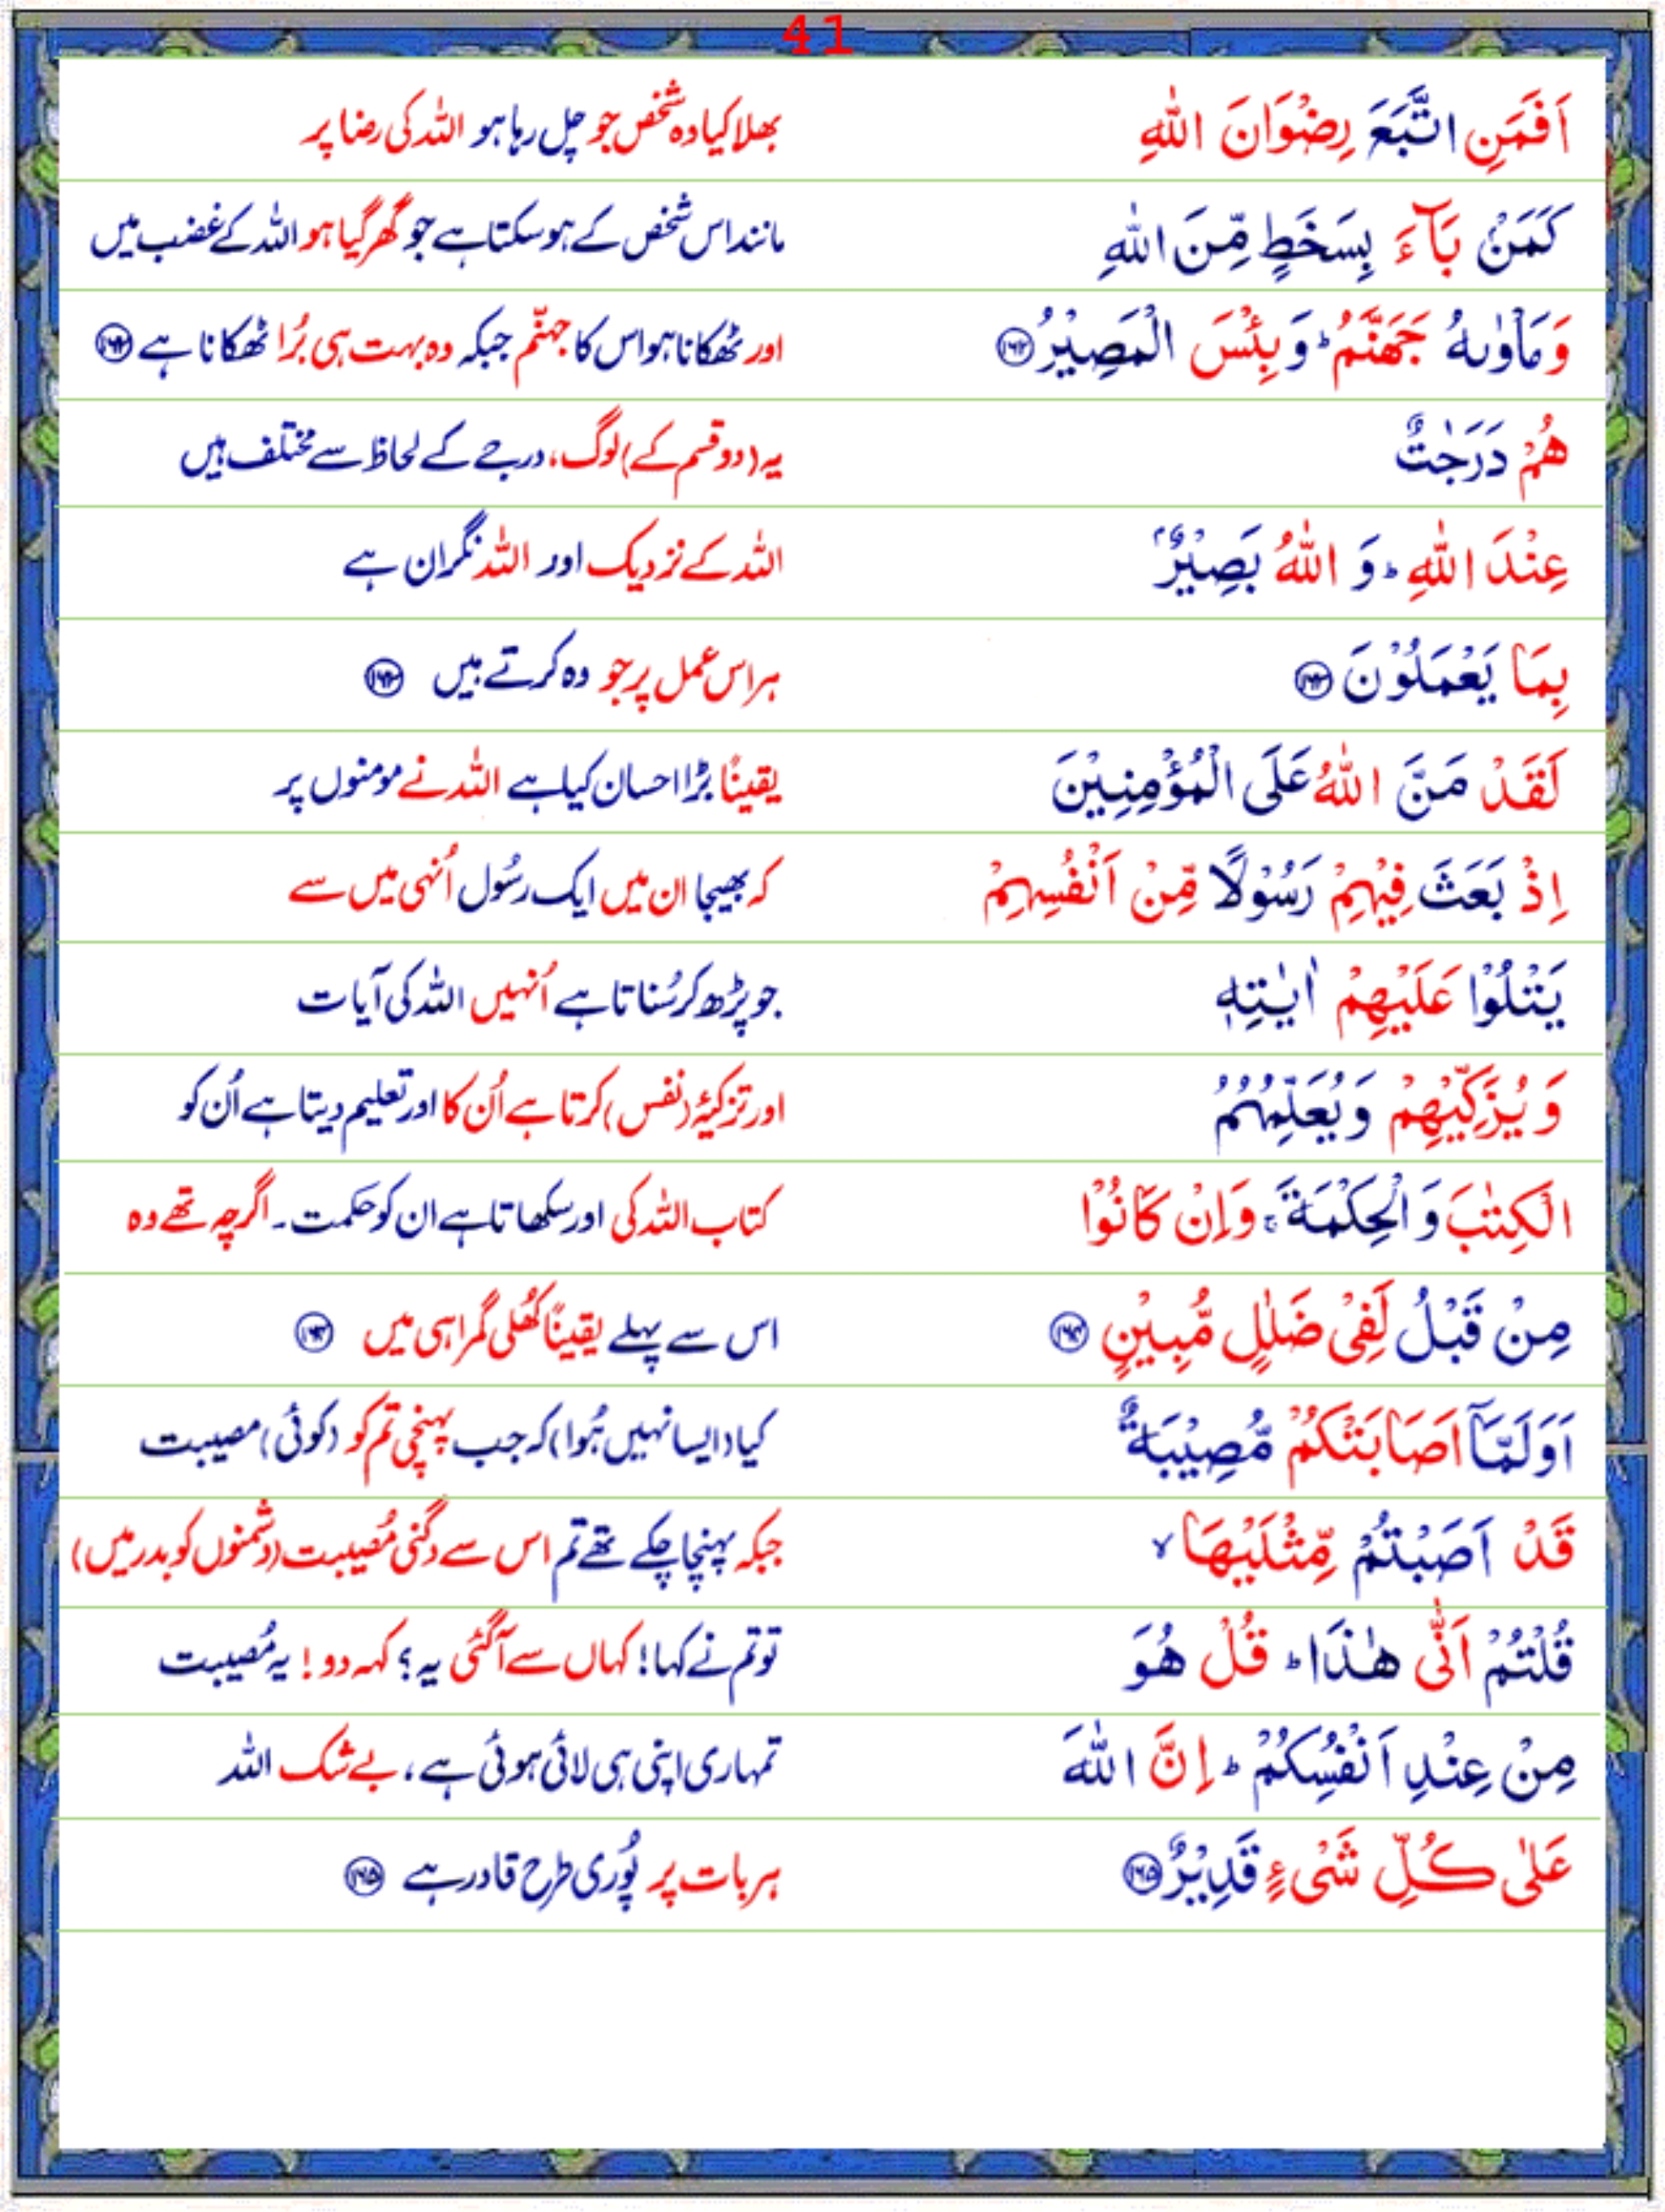 41
اَفَمَنِ اتَّبَعَ رِضْوَانَ اللّٰهِ بھلا کیا وہ شخص جو چل رہا ہو اللہ کی رضا پر
كَمَنْۢ بَآءَ بِسَخَطٍ مِّنَ اللّٰهِ مانند اس شخص کے ہوسکتا ہے جو گھر گیا ہو اللہ کے غضب میں
وَمَاْوٰىهُ جَهَنَّمُ ؕ وَبِئْسَ الْمَصِيْرُ ۝۱۶۲ اور ٹھکانا ہو اس کا جہنّم جبکہ وہ بہت ہی بُرا ٹھکانا ہے ۝۱۶۲
هُمْ دَرَجٰتٌ یہ (دو قسم کے) لوگ، درجے کے لحاظ سے مختلف ہیں
عِنْدَ اللّٰهِ ؕ وَ اللّٰهُ بَصِيْرٌۢ اللہ کے نزدیک اور اللہ نگران ہے
بِمَا يَعْمَلُوْنَ ۝۱۶۳ ہر اس عمل پر جو وہ کرتے ہیں ۝۱۶۳
لَقَدْ مَنَّ اللّٰهُ عَلَى الْمُؤْمِنِيْنَ یقینًا بڑا احسان کیا ہے اللہ نے مومنوں پر
اِذْ بَعَثَ فِيْهِمْ رَسُوْلًا مِّنْ اَنْفُسِهِمْ کہ بھیجا ان میں ایک رسُول اُنہی میں سے
يَتْلُوْا عَلَيْهِمْ اٰيٰتِهٖ جو پڑھ کر سُناتا ہے اُنہیں اللہ کی آیات
وَيُزَكِّيْهِمْ وَيُعَلِّمُهُمُ اور تزکیۂ (نفس) کرتا ہے اُن کا اور تعلیم دیتا ہے اُن کو
الْكِتٰبَ وَ الْحِكْمَةَ ۚ وَاِنْ كَانُوْا کتاب اللہ کی اور سکھاتا ہے ان کو حکمت۔ اگرچہ تھے وہ
مِنْ قَبْلُ لَفِىْ ضَلٰلٍ مُّبِيْنٍ ۝۱۶۴ اس سے پہلے یقینًا کھُلی گمراہی میں ۝۱۶۴
اَوَلَمَّاۤ اَصَابَتْكُمْ مُّصِيْبَةٌ کیا (ایسا نہیں ہُوا) کہ جب پہنچی تم کو (کوئی) مصیبت
قَدْ اَصَبْتُمْ مِّثْلَيْهَا ۙ جبکہ پہنچا چکے تھے تم اس سے دگنی مُصیبت (دشمنوں کو بدر میں)
قُلْتُمْ اَنّٰى هٰذَا ؕ قُلْ هُوَ تو تم نے کہا! کہاں سے آگئی یہ؟ کہہ دو! یہ مُصیبت
مِنْ عِنْدِ اَنْفُسِكُمْ ؕ اِنَّ اللّٰهَ تمہاری اپنی ہی لائی ہوئی ہے، بے شک اللہ
عَلٰى كُلِّ شَىْءٍ قَدِيْرٌ ۝۱۶۵ ہر بات پر پُوری طرح قادر ہے ۝۱۶۵